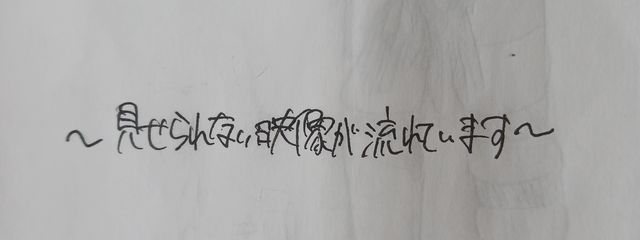 ～見せられない映像が流れています～